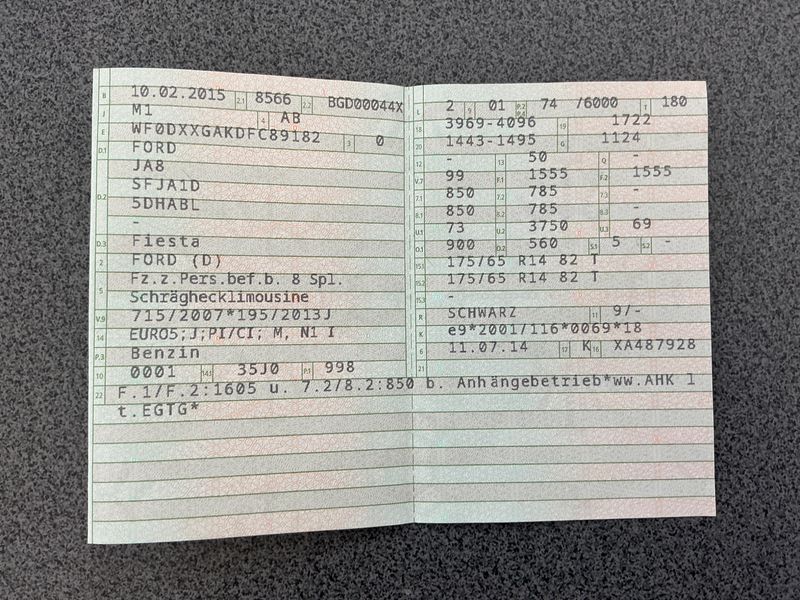 B 10.02.2015 2.1 8566 2.2 BGD00044X
J M1 4 AB
E WF0DXXGAKDFC89182 3 0
D.1 FORD
JA8
D.2 SFJA1D
5DHABL
-
D.3 Fiesta
2 FORD (D)
5 Fz.z.Pers.bef.b. 8 Spl.
Schräghecklimousine
V.9 715/2007*195/2013J
14 EURO5;J;PI/CI; M, N1 I
P.3 Benzin
10 0001 14.1 35J0 P.1 998
L 2 9 01 P.2 P.4 74 /6000 T 180
18 3969-4096 19 1722
20 1443-1495 G 1124
12 - 13 50 Q -
V.7 99 F.1 1555 F.2 1555
7.1 850 7.2 785 7.3 -
8.1 850 8.2 785 8.3 -
U.1 73 U.2 3750 U.3 69
O.1 900 O.2 560 S.1 5 S.2 -
15.1 175/65 R14 82 T
15.2 175/65 R14 82 T
15.3 -
R SCHWARZ 11 9/-
K e9*2001/116*0069*18
6 11.07.14 17 K 16 XA487928
21
22 F.1/F.2:1605 u. 7.2/8.2:850 b. Anhängebetrieb*ww.AHK l
t.EGTG*